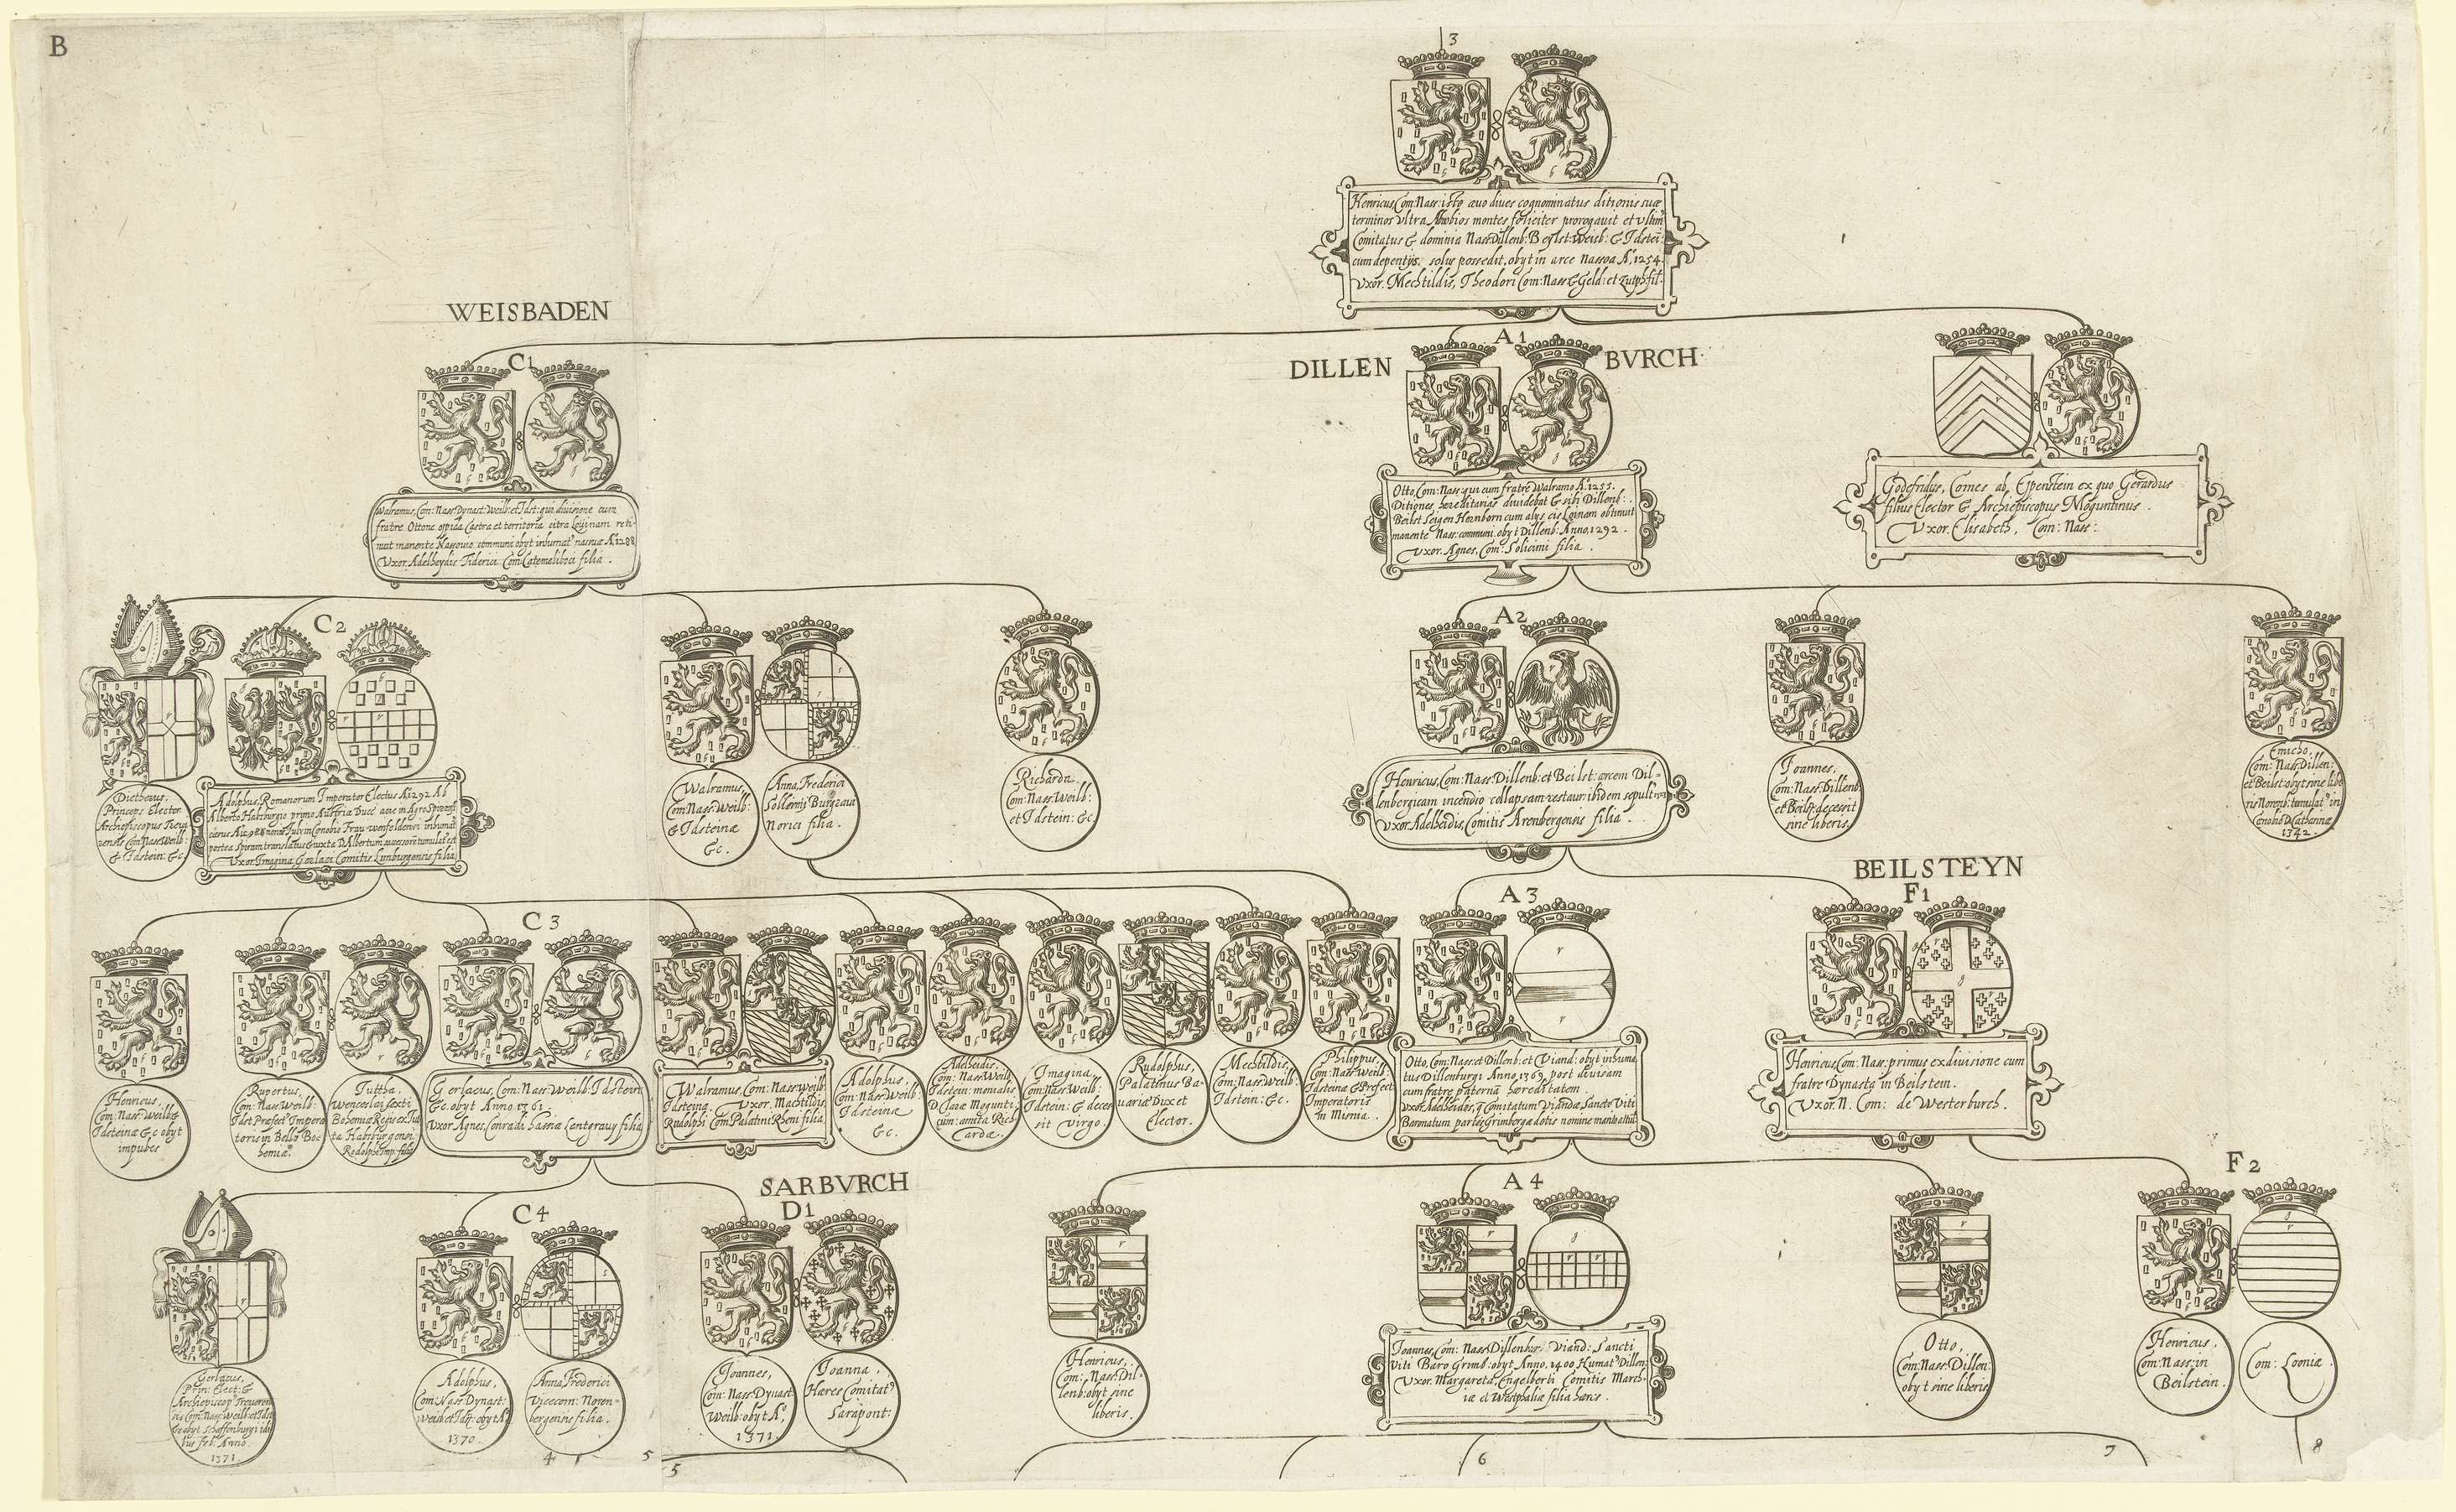 B
3
Henricus, Com: Nass: isto æuo diues cognominatus ditionis suæ
terminos vltra montes foeliciter prorogauit et
Comitatus & dominia Nass: Dillenb: Beylst: Weilb: & Idstei:
cum depentijs. solus possedit, obyt in arce Nassoa Aº. 1254.
Vxor. Mechtildis, Theodori Com: Nass & Geld: et Zutph fil:
WEISBADEN
C1
Walramus, Com: Nass: Dynast: Weilb: et Idst: qui diuisione cum
fratre Ottone oppida Castra et territoria citra reti-
nuit manente communi obyt inhumatº nassoæ Aº. 1288
Vxor. Adelheydis Com: Catemeliboci filia.
DILLEN A1 BVRCH
Otto, Com: Nass: qui cum fratre Walramo Aº. 1255.
Ditiones hereditarias diuidebat & sibi Dillenb:
Beilst: Seigen Hernborn cum alys cis Loinam obtinuit
manente Nass: communi. obyt Dillenb: Anno, 1292.
Vxor. Agnes, Com: Solicini filia.
Godefridus, Comes ab, Epenstein ex quo Gerardus
filius Elector & Archiepiscopus Moguntinus.
Vxor. Elisabeth, Com: Nass:
Dietherus,
Princeps Elector
Archiepiscopus Treui
rensis Com: Nass: Weilb:
& Idstein: &c.
C2
Adolphus, Romanorum Imperator Electus Aº. 1292 Ab
Alberto Habsburgio primo Austriæ Duce acie in Agro
Vxor Imagina Gerlaci Comitis Limburgensis filia
Walramus,
Com: Nass: Weilb:
& Idsteinæ
&c.
Anna, Frederici
Burgrauii
Norici filia.
Richardo.
Com: Nass: Weilb:
et Idstein: &c.
A2
Henricus, Com: Nass: Dillenb: et Beilst: arcem Dil-
lenbergicam incendio collapsam restaur: ibidem sepult:
Vxor. Adelheidis, Comitis Arenbergensis filia.
Joannes,
Com: Nass: Dillenb:
et Beilst: decessit
sine liberis.
Emicho,
Com: Nass: Dillen:
et Beilst: obyt sine libe
ris Norenb: tumulatº in
Cenobio D. Catharinæ
1342.
Henricus,
Com: Nass: Weilb &
Idsteinæ &c obyt
impubes
Rupertus,
Com: Nass: Weilb:
Idst: Præfect Impera
toris in Bello Boe
hemiæ.
Juttha.
Wenceslai sexti
Bohemiæ Regis ex Jut
ta Habsburgensi
Rodolphi Imp: filia
C3
Gerlacus, Com: Nass: Weilb: Idstein
&c. obyt Anno 1361.
Vxor Agnes, Conradi hassiæ Lentgrauy filia
Walramus, Com: Nass: Weilb:
Idsteinæ. Vxor. Machtildis
Rudolphi Com: Palatini Rheni filia.
Adolphus,
Com: Nass: Weilb:
Idsteinæ
&c.
Adelheidis,
Com: Nass: Weilb:
Idstein: monialis
D. Claræ Mogunti:
cum: amita Rich
cardæ.
Imagina,
Com: Nass: Weilb:
Idstein: & deces
sit Virgo.
Rudolphus,
Palatinus Ba-
uariæ Dux et
Elector.
Mechtildis,
Com: Nass: Weilb:
Idstein: &c.
Philippus,
Com: Nass: Weilb:
Idsteinæ & Præfect
Imperatoris
in Misnia.
A3
Otto, Com: Nass: et Dillenb: et Viand: obyt inhuma
tus Dillenburgi Anno, 1369. post diuisam
cum fratre paternā hæreditatem
Vxor Adelheides, q Comitatum Viandæ, Sancti Viti
Barmatum partes Grimbergæ dotis nomine
BEILSTEYN
F1
Henricus, Com: Nass: primus ex diuisione cum
fratre Dynasta in Beilstein.
Vxor. N. Com: de Westerburch.
Gerlacus,
Prin: Elect: &
Archiepiscop: Treueren
sis Com: Nass: Weilb: et Idst
&c obyt Schaffenburgi idi
bus feb: Anno.
1371.
C4
Adolphus,
Com: Nass: Dynast:
Weilb et Idst: obyt Aº.
1370.
Anna, Frederici
Vicecom: Noren-
bergensis filia.
SARBVRCH
D1
Joannes,
Com: Nass: Dynast
Weilb: obyt Aº.
1371.
Joanna,
Hæres Comitatº
Sarapont:
Henricus,
Com: Nass: Dil-
lenb: obyt sine
liberis.
A4
Joannes, Com: Nass: Dillenbur: Viand: Sancti
Viti Baro Grimb: obyt Anno, 1400 Humatº Dillen:
Vxor. Margareta, Engelberti Comitis March-
iæ et Westphaliæ filia hæres.
Otto,
Com: Nass: Dillen:
obyt sine liberis
F2
Henricus,
Com: Nass: in
Beilstein.
Com: Looniæ.
4
5
5
6
7
8